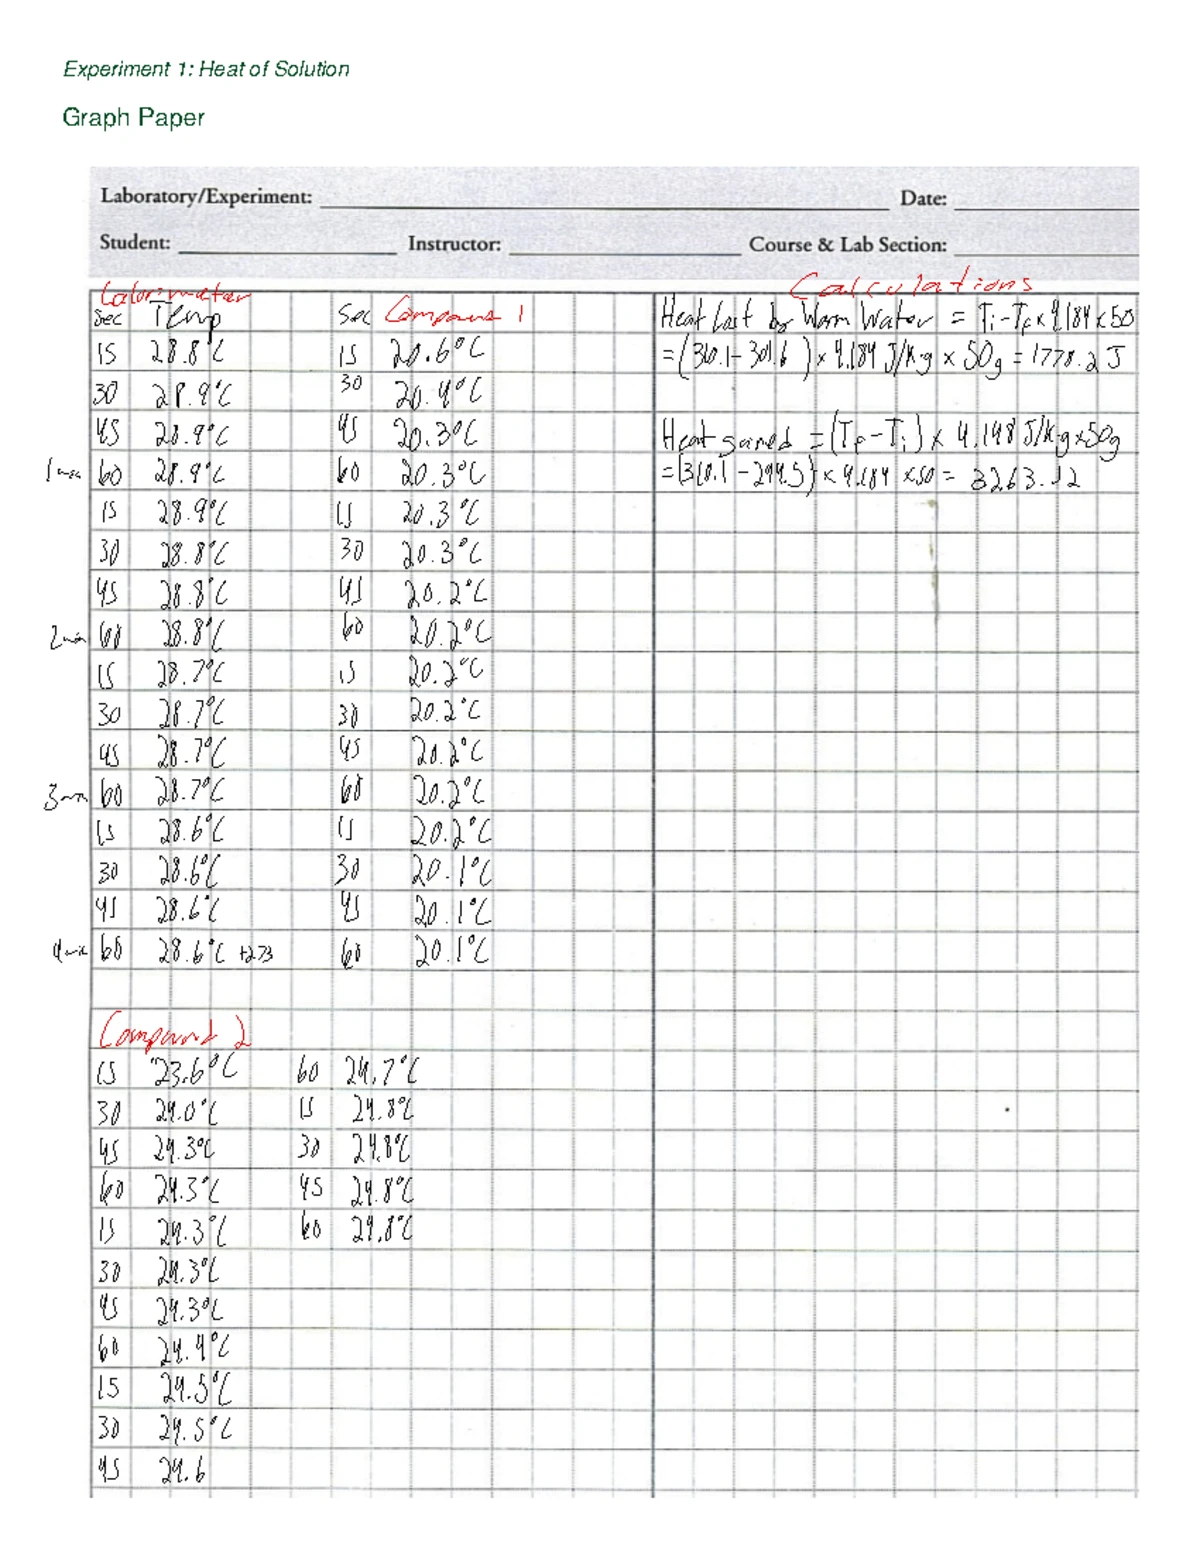 Experiment 1: Heat of Solution
Graph Paper
Laboratory/Experiment: Date:
Student: Instructor: Course & Lab Section:
Calorimeter Calculations
Sec Temp Sec Compound 1 Heat Lost by Warm Water = Ti-Tf x 4.184 x 50
15 28.8°C 15 20.6°C =(310.1-301.6) x 4.184 J/K·g x 50g = 1778.2 J
30 28.9°C 30 20.4°C
45 28.9°C 45 20.3°C Heat gained = (Tf-Ti) x 4.148 J/K·g x50g
1 min 60 28.9°C 60 20.3°C =(310.1-294.5) x 4.184 x50 = 3263.12
15 28.9°C 15 20.3°C
30 28.8°C 30 20.3°C
45 28.8°C 45 20.2°C
2 min 60 28.8°C 60 20.2°C
15 28.7°C 15 20.2°C
30 28.7°C 30 20.2°C
45 28.7°C 45 20.2°C
3 min 60 28.7°C 60 20.2°C
15 28.6°C 15 20.2°C
30 28.6°C 30 20.1°C
45 28.6°C 45 20.1°C
4 min 60 28.6°C +273 60 20.1°C
Compound 2
15 23.6°C 60 24.7°C
30 24.0°C 15 24.8°C
45 24.3°C 30 24.8°C
60 24.3°C 45 24.8°C
15 24.3°C 60 24.8°C
30 24.3°C
45 24.3°C
60 24.4°C
15 24.5°C
30 24.5°C
45 24.6